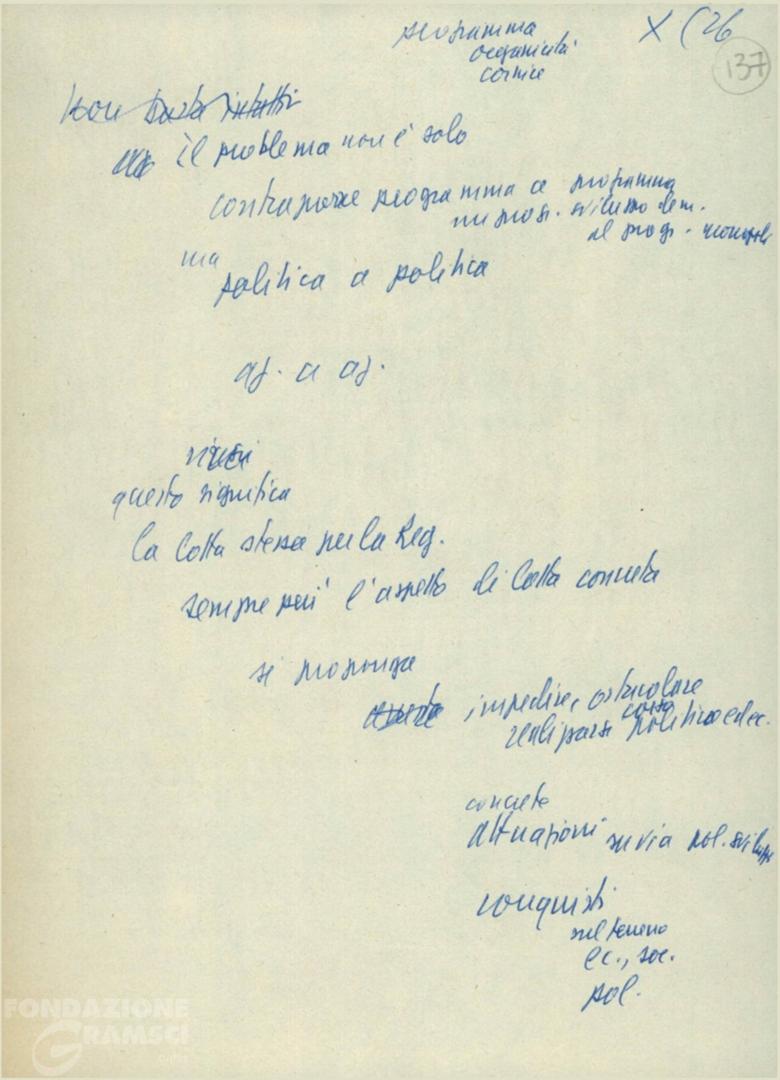 programma
organicità
cornice
X (26
137
Non basta infatti
il problema non è solo
contrapporre programma a programma
un progr. sviluppo dem.
al progr. monopoli
ma
politica a politica
az. a az.
questo significa
la lotta stessa per la Reg.
sempre più l'aspetto di lotta concreta
si proponga
impedire, ostacolare
realizzarsi corso politico ed ec.
concrete
attuazioni su via pol. sviluppo
conquisti
sul terreno
ec., soc.
pol.
FONDAZIONE
GRAMSCI